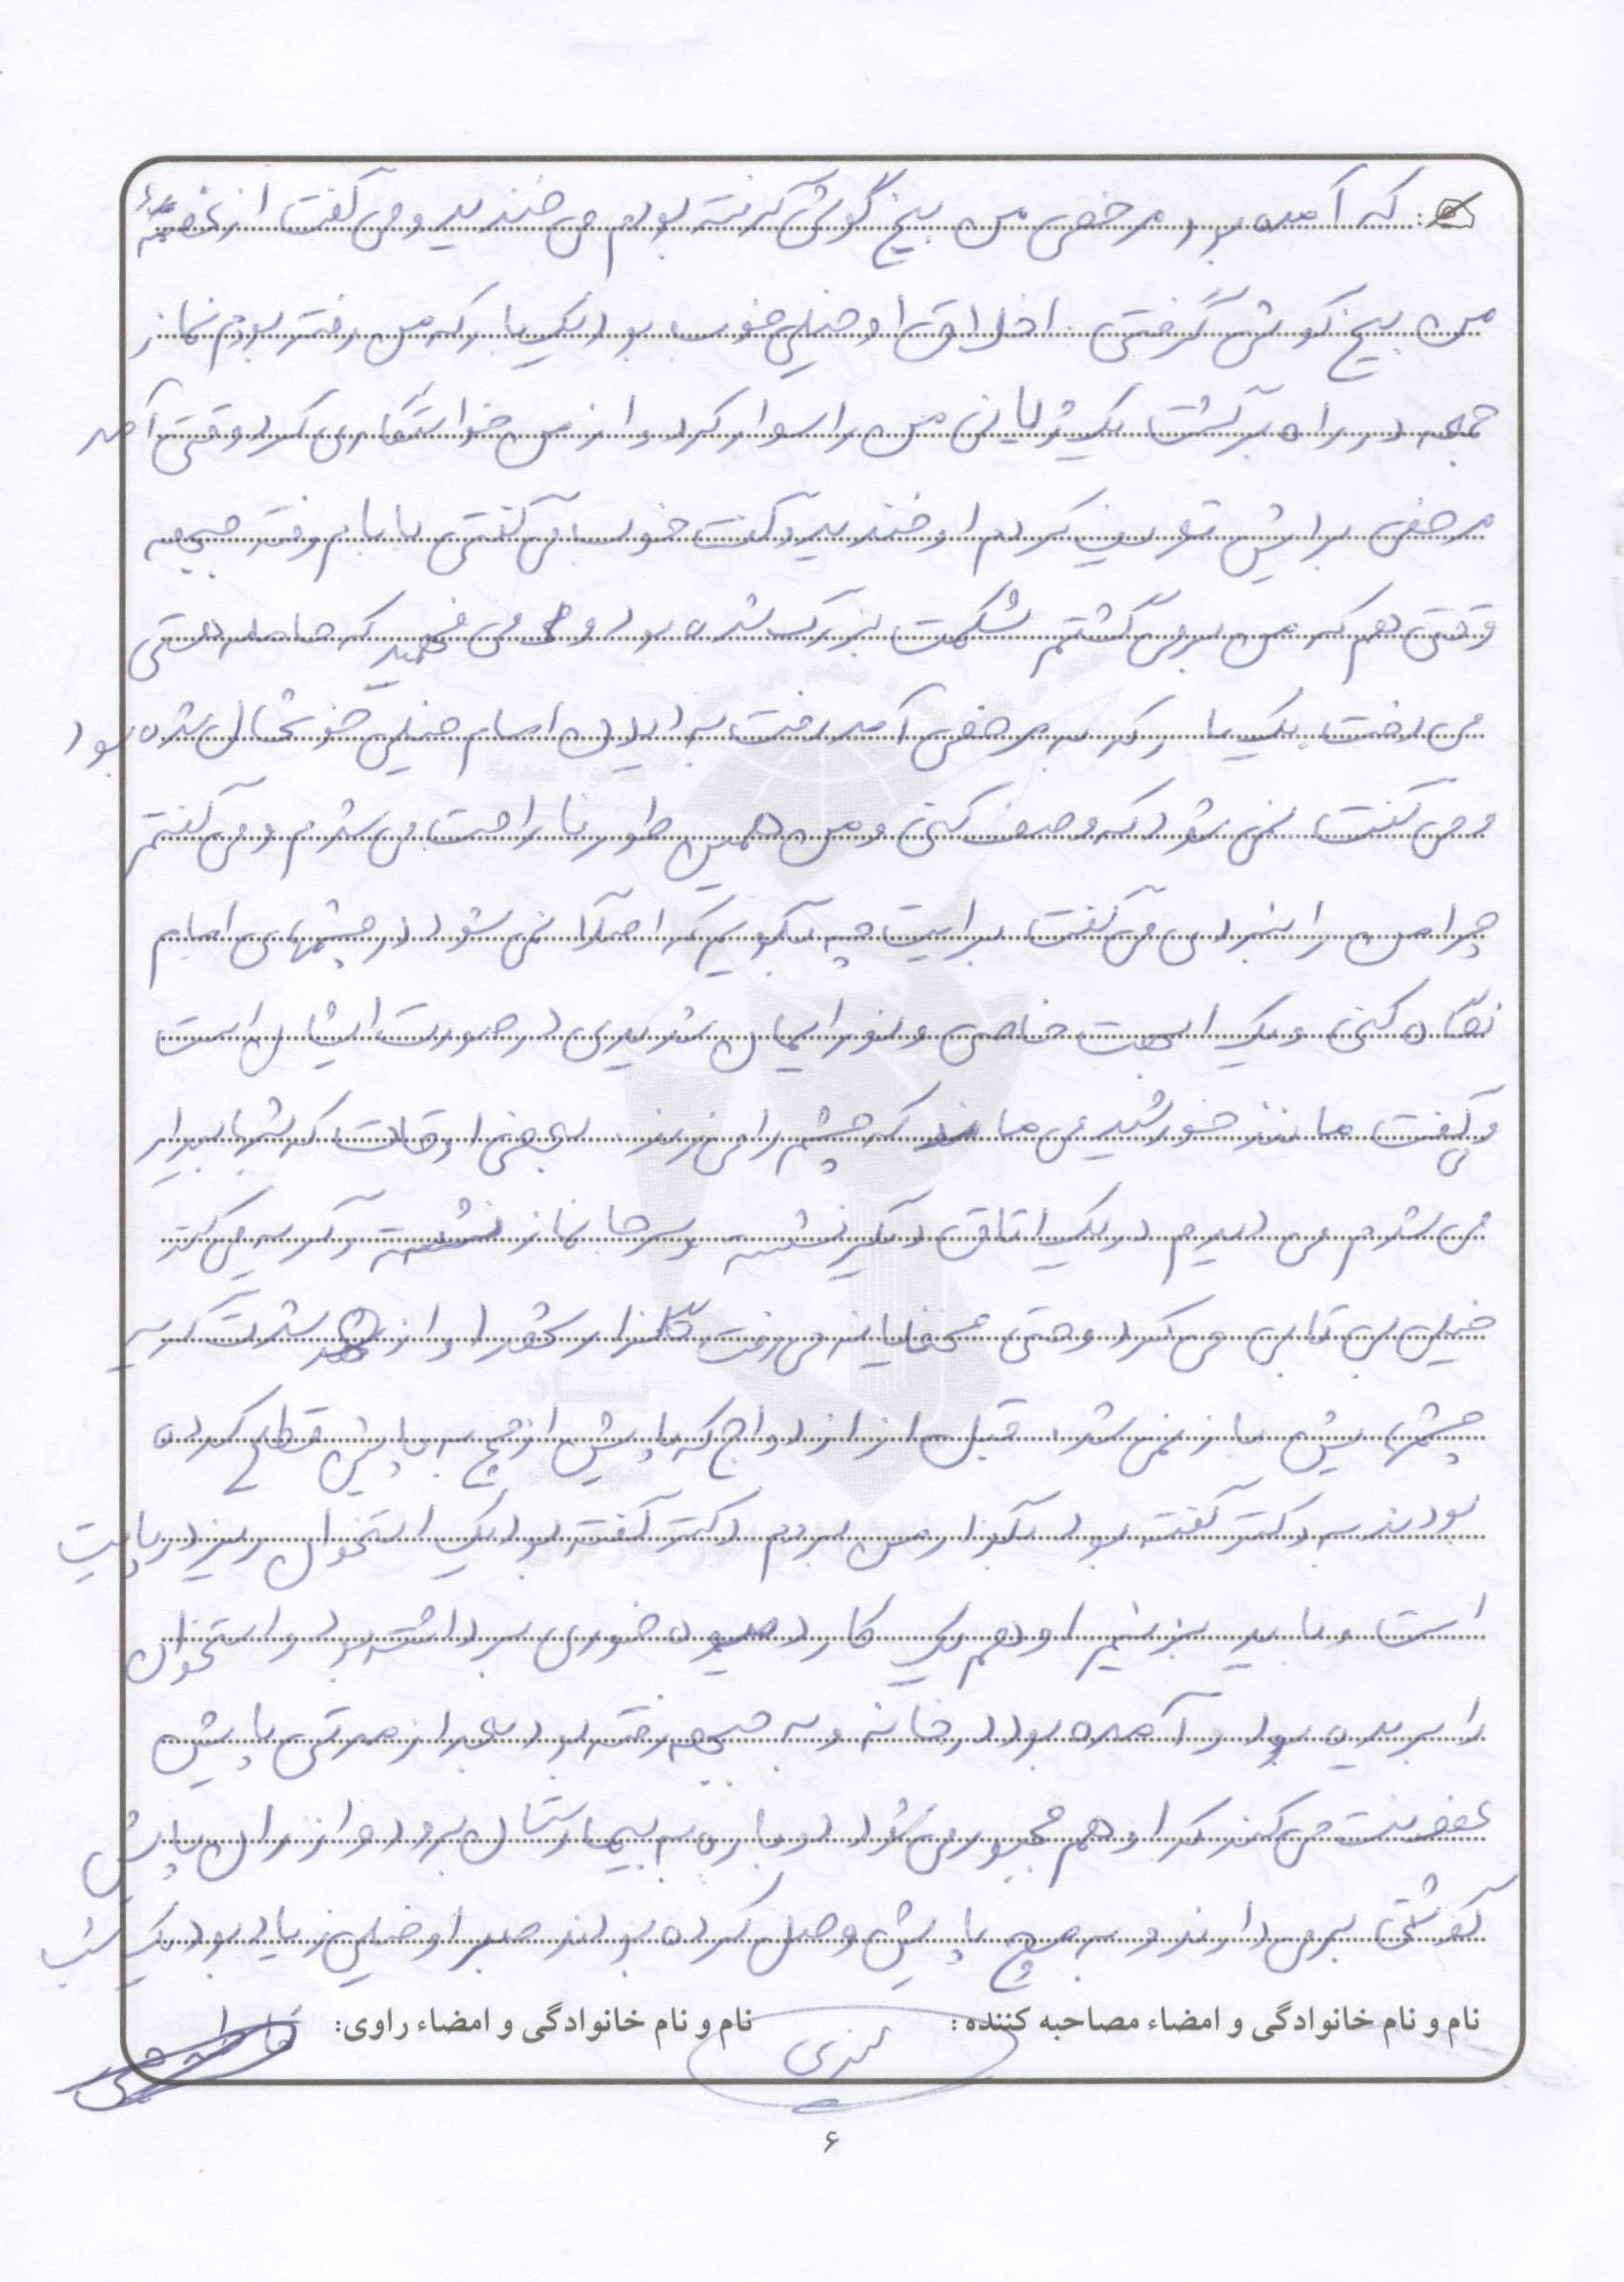 که آمده بود مرخصی من بیخ گوشی گرفته بودم می خندید و می گفت از غصهٔ
من بیخ گوشی گرفتی. اخلاق او خیلی خوب بود یک بار که من رفته بودم نماز
جمعه در راه برگشت یک ژیان من را سوار کرد و از من خواستگاری کرد وقتی آمد
مرخصی برایش تعریف کردم او خندید و گفت خوب می گفتی بابام رفته جبهه
وقتی هم که من برمی گشتم شکمت بزرگ شده بود و می فهمید که حامله هستی
می رفت. یک بار که به مرخصی آمد رفت به دیدن امام خیلی خوشحال شده بود
و می گفت نمی شود که وصف کنی و من همین طور ناراحت می شدم و می گفتم
چرا من را نبردی می گفت برایت چه بگویم که اصلاً نمی شود در چشمهای امام
نگاه کنی و یک ابهت خاصی و نور ایمان شدیدی در صورت ایشان است
و می گفت مانند خورشید می ماند که چشم را می زند. بعضی اوقات که شبها بیدار
می شدم می دیدم در یک اتاق دیگر نشسته و سر جا نماز نشسته و گریه می کند
خیلی بی تابی می کرد و حتی مخفیانه می رفت گلزار شهدا و از شدت گریه
چشمهایش باز نمی شد. قبل از ازدواج که پایش از مچ به پایین قطع کرده
بودند به دکتر گفته بود بگذار من بروم دکتر گفته بود یک استخوان ریز در پایت
است و باید بزنیم او هم یک کارد میوه خوری برداشته بود و استخوان
را بریده بود و آمده بود در خانه و به جبهه رفته بود بعد از مدتی پایش
عفونت می کند که او هم مجبور می شود دوباره به بیمارستان برود و از ران پایش
گوشتی برمی دارند و به مچ پایش وصل کرده بودند صبر او خیلی زیاد بود یک شب
نام و نام خانوادگی و امضاء مصاحبه کننده: نام و نام خانوادگی و امضاء راوی:
۶